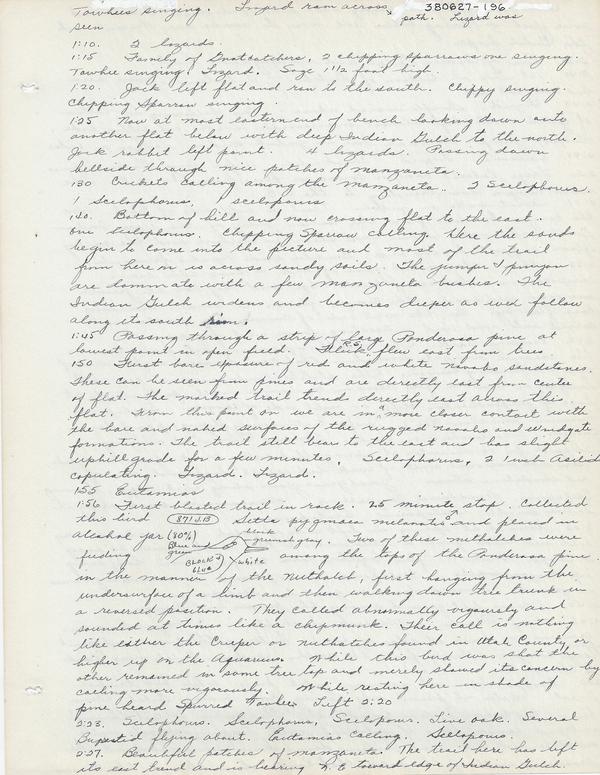 Towhees singing. Lizard ran across path. Lizard was
380627-196
seen
1:10. 2 lizards.
1:15 Family of Gnatcatchers, 2 chipping sparrows one singing.
Towhee singing. Lizard. Sage 1 1/2 foot high.
1:20. Jack left flat and ran to the south. Chippy singing.
Chipping Sparrow singing.
1:25 Now at most eastern end of bench looking down onto
another flat below with deep Indian Gulch to the north.
Jack rabbit left point. 4 lizards. Passing down
hillside through nice patches of manzaneta.
1:30 Crickets calling among the manzaneta. 2 Scelophorus.
1 Scelophorus, 1 sceloporus
1:40. Bottom of hill and now crossing flat to the east.
One scelophorus. Chipping Sparrow calling. Here the sands
begin to come into the picture and most of the trail
from here on is across sandy soils. The juniper & pinyon
are dominate with a few manzaneta bushes. The
Indian Gulch widens and becomes deeper as we follow
along its south rim.
1:45 Passing through a strip of large Ponderosa pine at
lowest point in open field. Flick. R.S. flew east from trees
1:50 First bare exposure of red and white navaho sandstones.
These can be seen from pines and are directly east from center
of flat. The marked trail trends directly east across this
flat. From this point on we are in a more closer contact with
the bare and naked surfaces of the rugged navaho and Windgate
formations. The trail still bears to the east and has slight
uphill grade for a few minutes. Scelophorus, 2 1 inch Asilids
copulating. Lizard. Lizard.
1:55 Eutamias
1:56 First blasted trail in rock. 25 minute stop. Collected
this bird 871 J.B Sitta pygmaea melanotis and placed in
alcohol jar (80%) black
Blue and green brownish gray. Two of these nuthatches were
feeding BLACK & blue white among the tops of the Ponderosa pine
in the manner of the Nuthatch, first hanging from the
undersurface of a limb and then walking down tree trunk in
a reversed position. They called abnormally vigorously and
sounded at times like a chipmunk. Their call is nothing
like either the Creeper or nuthatches found in Utah County or
higher up on the Aquarius. While this bird was shot the
other remained in same tree top and merely showed its concern by
calling more vigorously. While resting here in shade of
pine heard Spurred Towhee. Left 2:20
2:23. Scelophorus. Scelophorus, Sceloporus. Live oak. Several
Buprestid flying about. Eutamias calling. Sceloporus.
2:27. Beautiful patches of manzaneta. The trail here has left
its east trend and is bearing N. E toward edge of Indian Gulch.